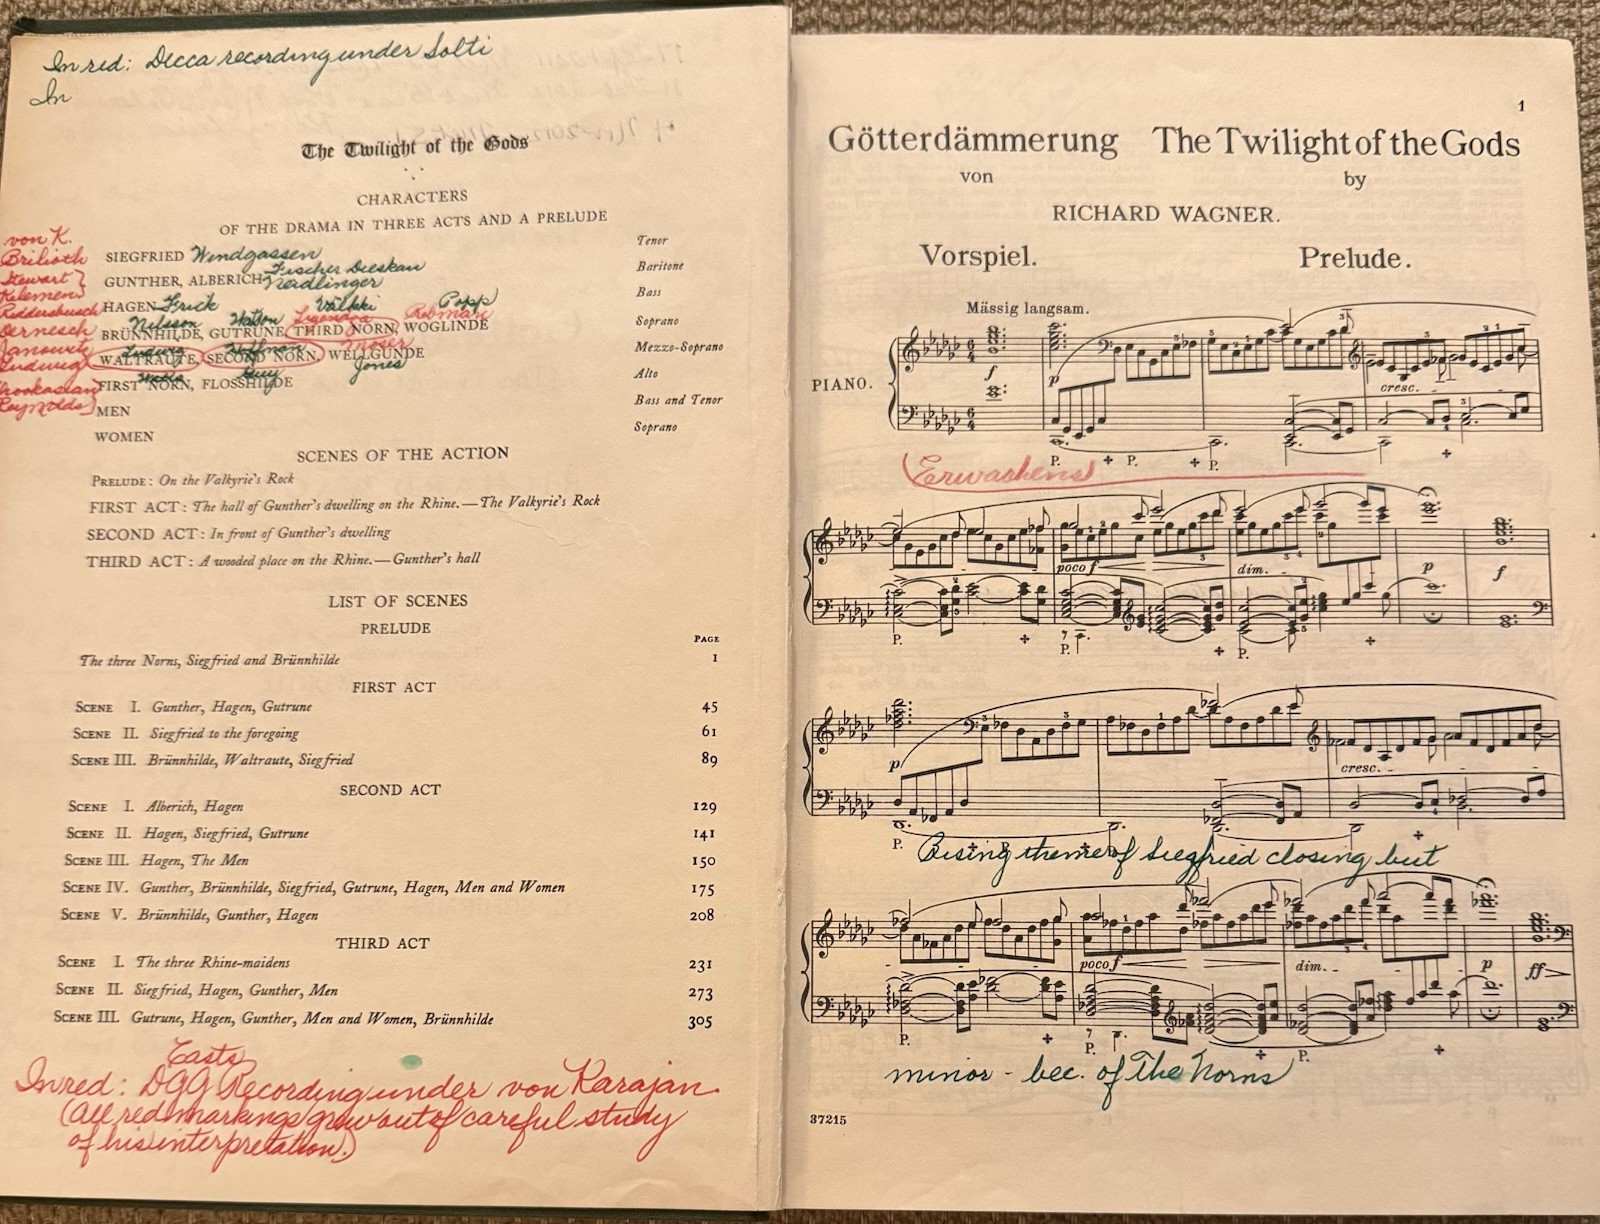 In red: Decca recording under Solti
In
The Twilight of the Gods
CHARACTERS
OF THE DRAMA IN THREE ACTS AND A PRELUDE
von K.
Brilioth
SIEGFRIED Windgassen Tenor
Stewart
Kelemen
GUNTHER, ALBERICH Fischer Dieskau Neidlinger Baritone
Ridderbusch
HAGEN Frick Bass
Välkki Ligendza Popp Rebman
Dernesch
Nilsson Watson
BRÜNNHILDE, GUTRUNE, THIRD NORN, WOGLINDE Soprano
Janowitz
Ludwig Hoffman Moser
Ludwig
WALTRAUTE, SECOND NORN, WELLGUNDE Mezzo-Soprano
Guy Jones
FIRST NORN, FLOSSHILDE Alto
Reynolds
MEN Bass and Tenor
WOMEN Soprano
SCENES OF THE ACTION
PRELUDE: On the Valkyrie's Rock
FIRST ACT: The hall of Gunther's dwelling on the Rhine.—The Valkyrie's Rock
SECOND ACT: In front of Gunther's dwelling
THIRD ACT: A wooded place on the Rhine.—Gunther's hall
LIST OF SCENES
PRELUDE
PAGE
The three Norns, Siegfried and Brünnhilde 1
FIRST ACT
SCENE I. Gunther, Hagen, Gutrune 45
SCENE II. Siegfried to the foregoing 61
SCENE III. Brünnhilde, Waltraute, Siegfried 89
SECOND ACT
SCENE I. Alberich, Hagen 129
SCENE II. Hagen, Siegfried, Gutrune 141
SCENE III. Hagen, The Men 150
SCENE IV. Gunther, Brünnhilde, Siegfried, Gutrune, Hagen, Men and Women 175
SCENE V. Brünnhilde, Gunther, Hagen 208
THIRD ACT
SCENE I. The three Rhine-maidens 231
SCENE II. Siegfried, Hagen, Gunther, Men 273
SCENE III. Gutrune, Hagen, Gunther, Men and Women, Brünnhilde 305
Casts
In red: DGG Recording under von Karajan
(all red markings grew out of careful study
of his interpretation.)
1
Götterdämmerung The Twilight of the Gods
von by
RICHARD WAGNER.
Vorspiel. Prelude.
Mässig langsam.
PIANO.
f p cresc.
P. P. P.
(Erwachens
poco f dim. p f
P. P. P.
p cresc.
P.
Rising theme of Siegfried closing but
poco f dim. p ff
P. P. P.
minor - bec. of The Norns
37215